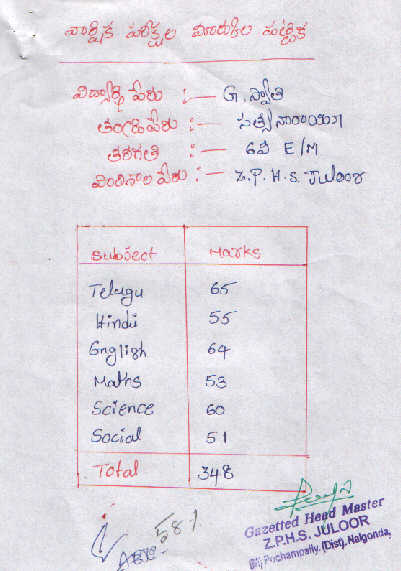 వార్షిక పరీక్షల మార్కుల పట్టిక
విద్యార్థి పేరు :— G. స్వాతి
తండ్రిపేరు :— సత్యనారాయణ
తరగతి :— 6వ E/M
పాఠశాల పేరు :— Z.P.H.S. JULOOR
Subject Marks
Telugu 65
Hindi 55
English 64
Maths 53
Science 60
Social 51
Total 348
58%
Gazetted Head Master
Z.P.H.S. JULOOR
Pochampally, (Dist). Nalgonda,